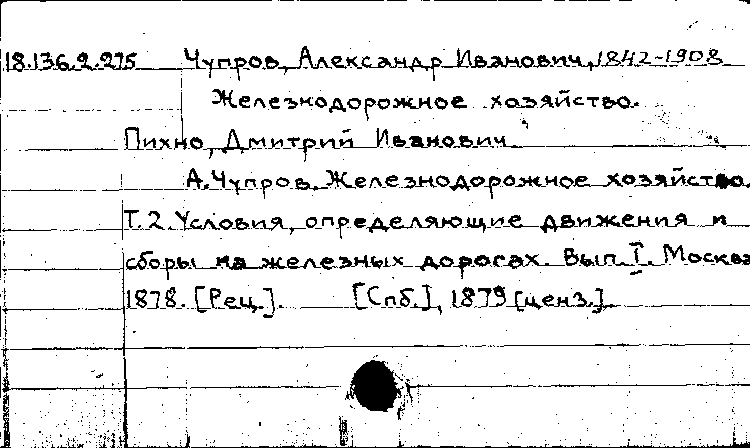 18.136.2.275 Чупров, Александр Иванович, 1842-1908
Железнодорожное хозяйство.
Пихно, Дмитрий Иванович.
А. Чупров. Железнодорожное хозяйство.
Т. 2. Условия, определяющие движения и
сборы на железных дорогах. Вып. I. Москва
1878. [Рец.]. [Спб.], 1879 [ценз.].